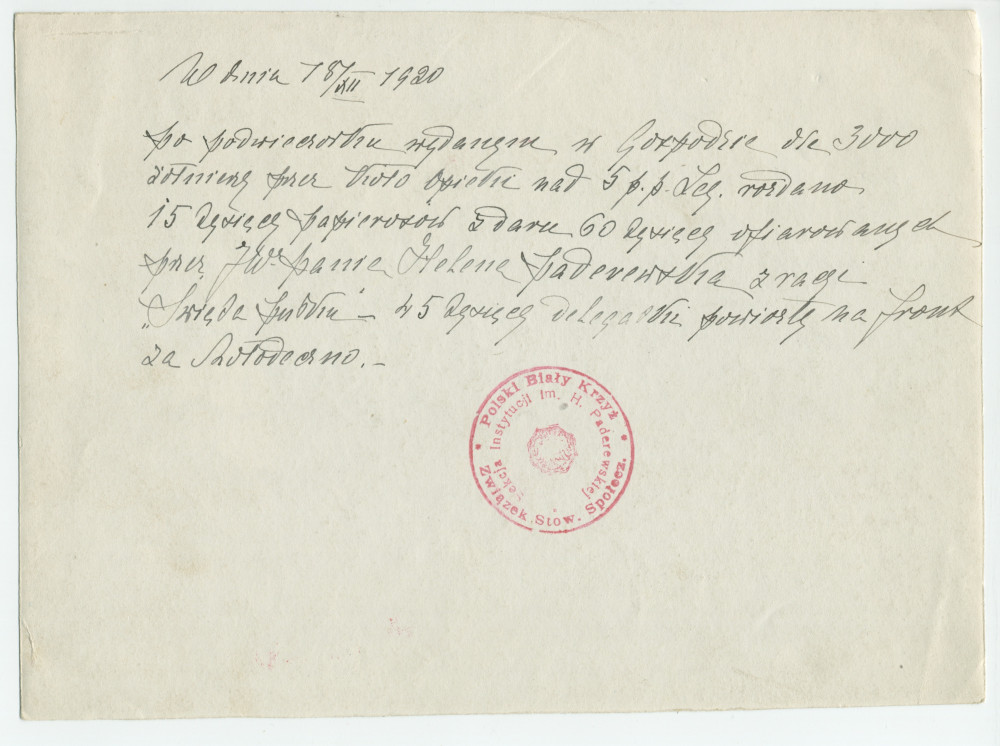 W dnia 18/XII 1920
po podwieczorku wydanym w Gospodzie dla 3000
żołnierzy przez Koło Opieki nad 5 p.p. Leg. rozdano
15 tysięcy papierosów z daru 60 tysięcy ofiarowanych
przez JW. panią Helenę Paderewską z racji
"Święta pułku" – 45 tysięcy delegatki powiozły na front
za Mołodeczno. –
Polski Biały Krzyż
Sekcja Instytucji im. H. Paderewskiej
Związek Stow. Społecz.